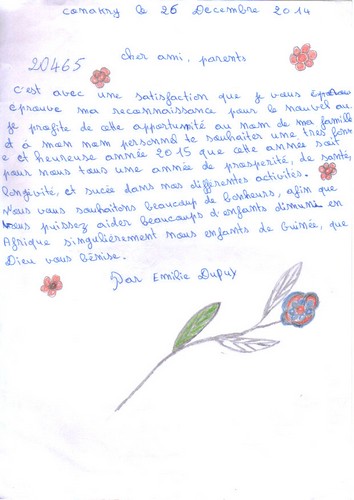 conakry le 26 Decembre 2014
cher ami, parents
20465
c'est avec une satisfaction que je vous éprouve
éprouve ma reconnaissance pour le nouvel an.
je profite de cette apportunité au nom de ma famille
et à mon nom personnel te souhaiter une très bonne
e et heureuse année 2015 que cette année soit
pour nous tous une année de prosperité, de santé,
longévité, et sucée dans nos differentes activités.
Nous vous souhaitons beaucoup de bonheurs, afin que
vous puissez aider beaucoups d'enfants dimunis en
Afrique singulièrement nous enfants de Guinée, que
Dieu vous bénise.
Par Emilie Dupuy